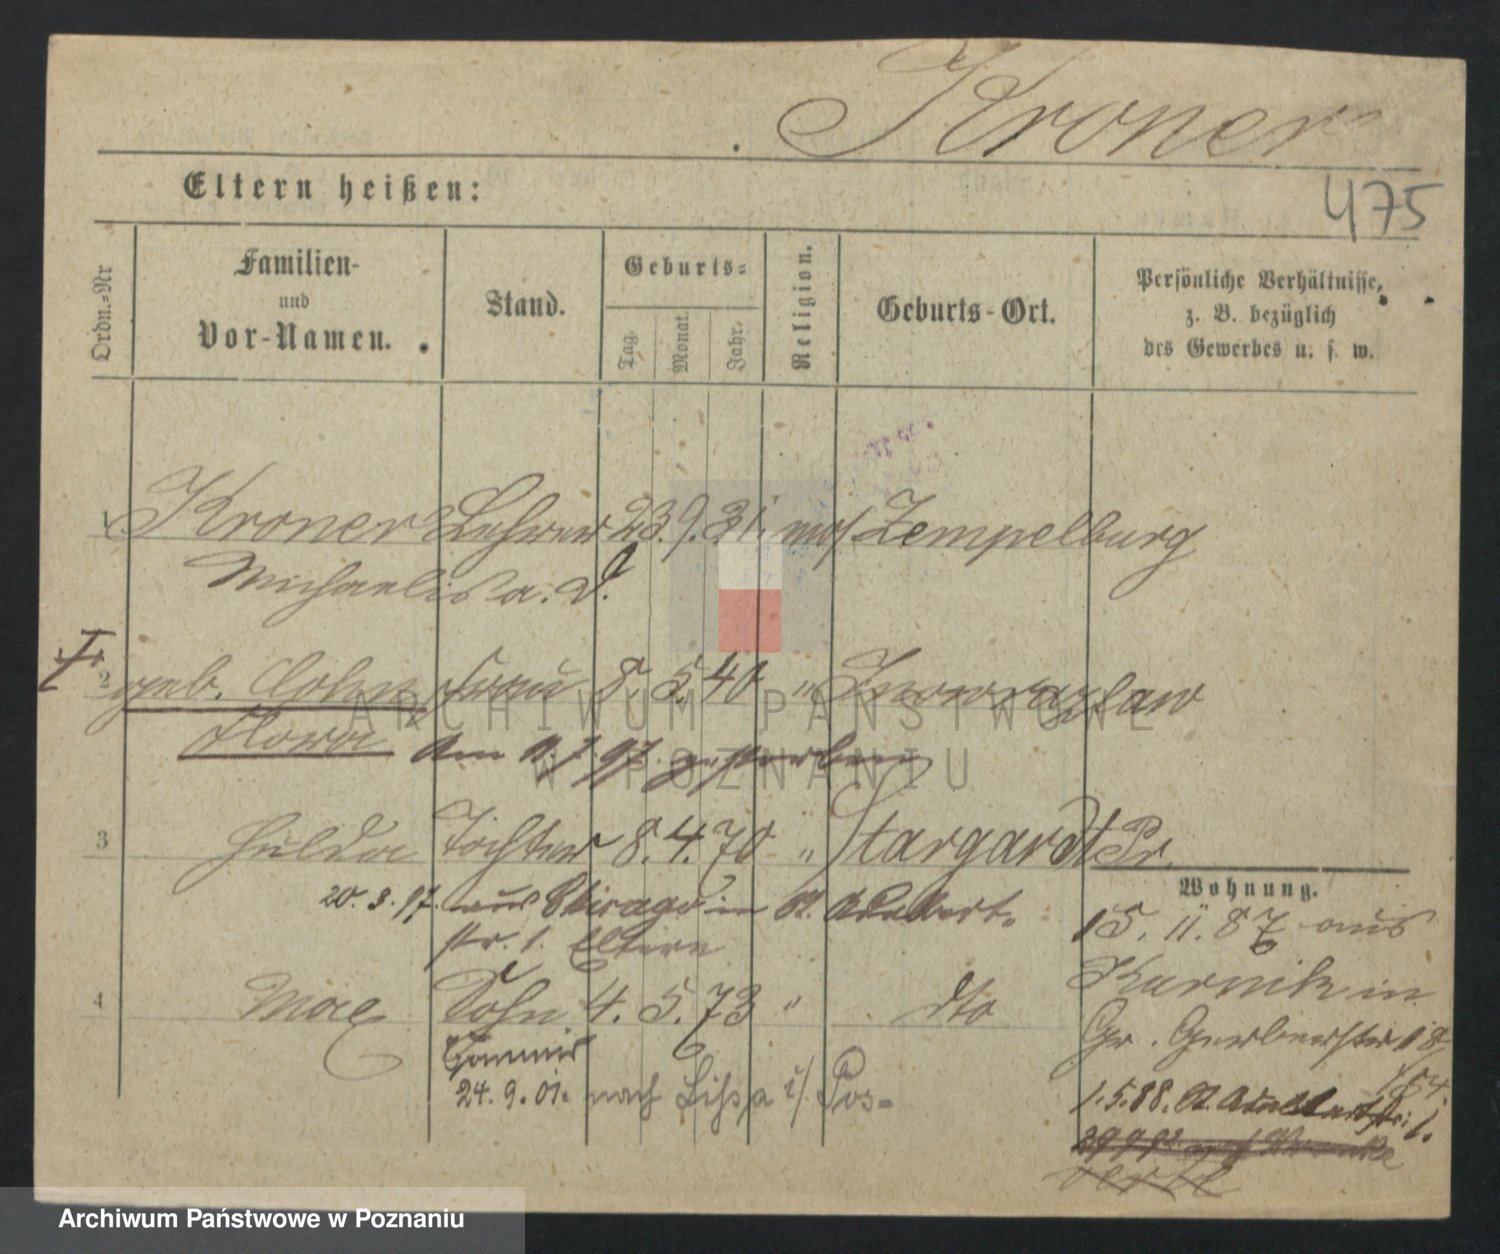 Kroner
Eltern heißen:
475
Ordn.=Nr
Familien-
und
Vor-Namen.
Stand.
Geburts=
Tag.
Monat.
Jahr.
Religion.
Geburts-Ort.
Persönliche Verhältnisse,
z. B. bezüglich
des Gewerbes u. s. w.
1 Kroner Lehrer 23. 9. 31. mos Zempelburg
Michaelis a. D.
2 geb. Cohn Frau 8 5. 40 " Inowrazlaw
Flora am 7. 97. gestorben
3 Hulda Tochter 8. 4. 70 " Stargardt Pr.
20. 3. 97. aus Chicago in St. Adalbert.
str. 1. Eltern
4 Max Sohn 4. 5. 73 " dto
Commis
24. 9. 01. nach Lissa i/. Pos=
Wohnung.
15. 11. 87 aus
Kurnik in
Gr. Gerberstr 18
1.5.88. St. Adalbertstr: 1.
ARCHIWUM PAŃSTWOWE
W POZNANIU
Archiwum Państwowe w Poznaniu